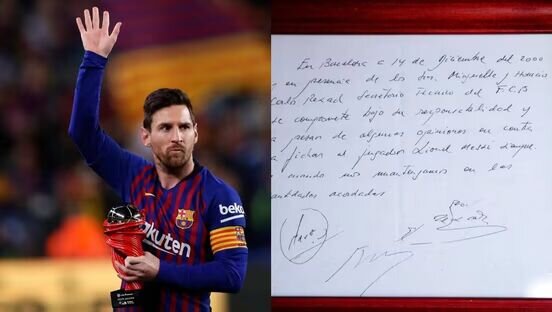 beko
Rakuten
En Barcelona a 14 de Diciembre del 2000
en presencia de los Srs. Minguella y Horacio
Carlo Rexach Secretario Técnico del F.C.B
se compromete bajo su responsabilidad y
a pesar de algunas opiniones en contra
a fichar al jugador Lionel Messi siempre
cuando nos mantengamos en las
cantidades acordadas